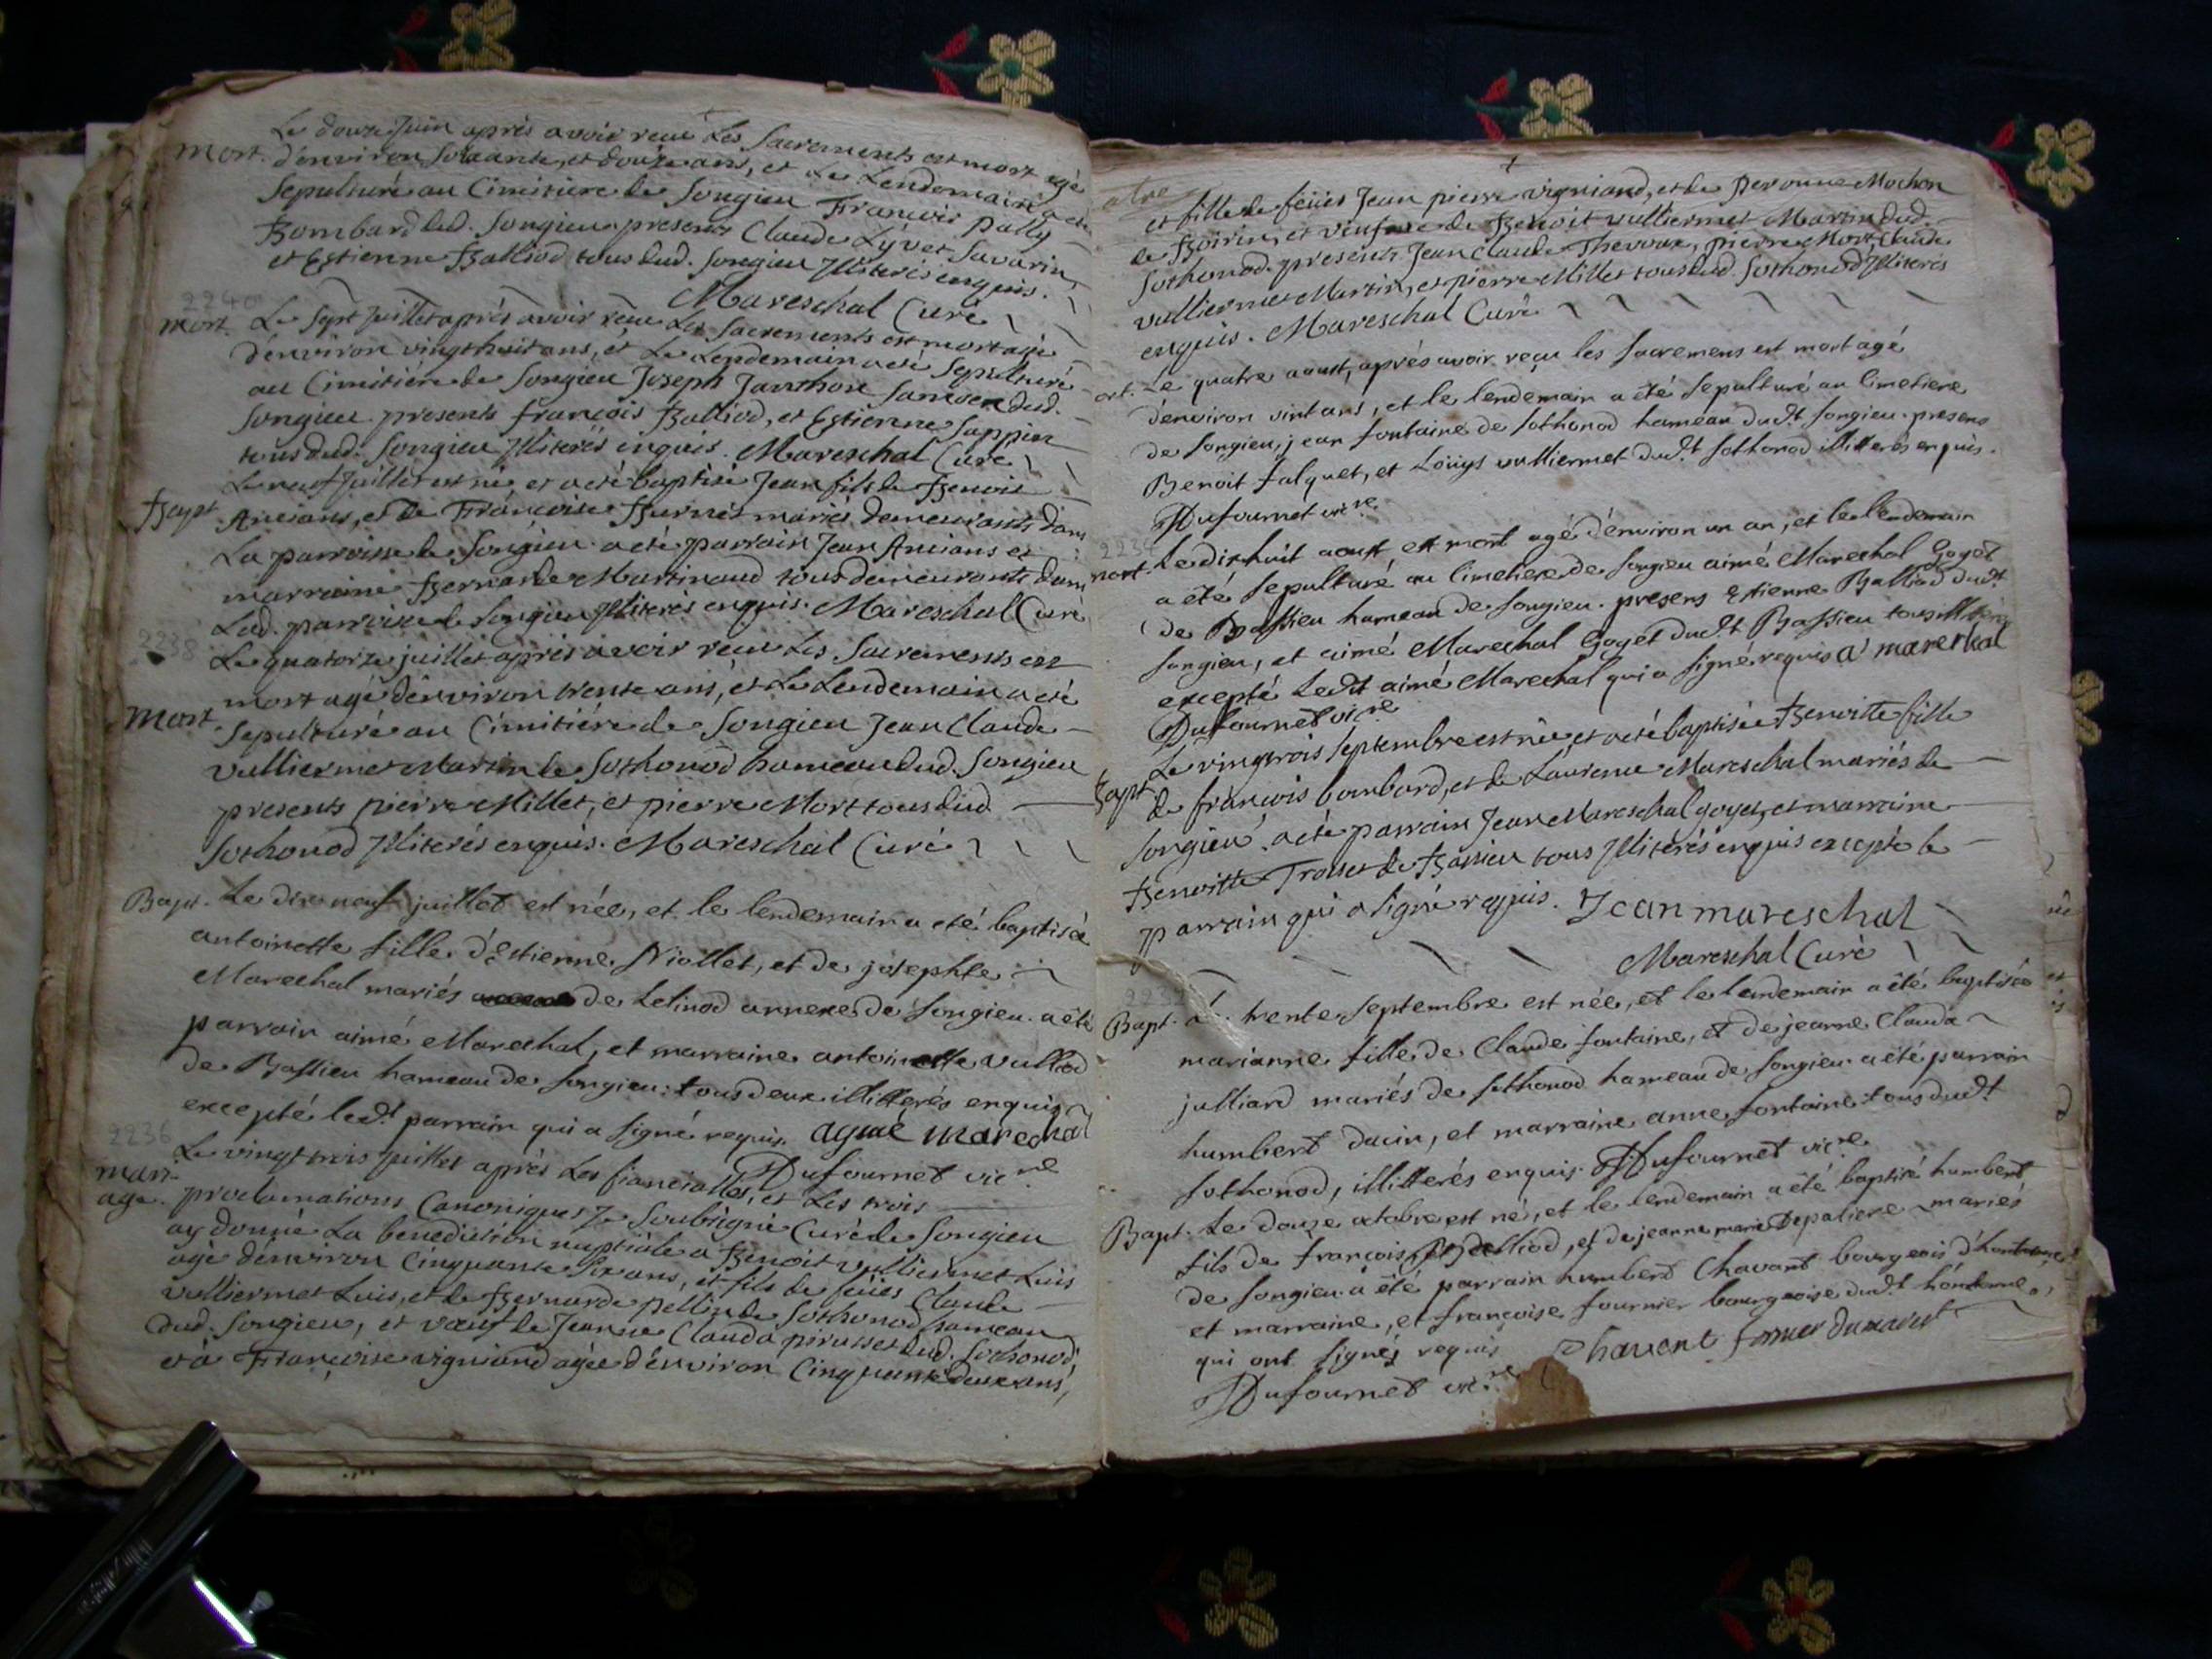 Le douze Juin aprés avoir receu Les Sacrements est mort agé
Mort. d'environ soixante, et douze ans, et Le Lendemain a eté
sepulturé au Cimitiere de Songieu François Pally
Bombard dud. Songieu presents Claude Lyvet Savarin,
et Estienne Balliod tous dud. Songieu Jlliterés enquis.
Mareschal Curé
2240
mort. Le sept Juillet aprés avoir receu Les Sacrements est mort agé
d'environ vingt huit ans, et Le Lendemain a eté sepulturé
au Cimitiere de Songieu Joseph Janthon dud.
Songieu presents françois Balliod, et Estienne Sappin
tous dud. Songieu Jlliterés enquis. Mareschal Curé
Le neuf Juillet est né et a eté baptisé Jean fils de Benoit
Bapt. Ancians, et de Françoise Burnet mariés demeurants dans
La parroisse de Songieu a eté parrain Jean Ancians et
marraine Bernarde Martinand tous demeurants dans
Lad. parroisse de Songieu Jlliterés enquis. Mareschal Curé
2238
Le quatorze juillet aprés avoir receu Les Sacrements est
mort agé d'environ trente ans, et Le Lendemain a eté
Mort. sepulturé au Cimitiére de Songieu Jean Claude
Vulliermet Martin de Sothonod hameau dud. Songieu
presents pierre Millet, et pierre Mort tous dud.
Sothonod Jlliterés enquis. Mareschal Curé
Bapt. Le dix neuf juillet est née, et le lendemain a eté baptisée
antoinette fille d'Estienne Niollet, et de josephte
Marechal mariés de Lelinod annexe de Songieu. a eté
parrain aimé Marechal, et marraine antoinette Vullod
de Bassieu hameau de songieu: tous deux illitterés enquis
excepté ledt. parrain qui a signé requis. aymé marechal
Dufournet vicre
2236
mari- Le vingt trois juillet aprés Les fiancialles, et Les trois
age. proclamations Canoniques Je Soubsigné Curé de Songieu
ay donné La benediction nuptiale a Benoit Vulliermet Luis
agé d'environ Cinquante six ans, et fils de feües Claude
Vulliermet Luis, et de Bernarde pellin de Sothonod hameau
dud. Songieu, et vœuf de Jeanne Clauda pirasset dud. Sothonod,
et à Françoise vigniand agée d'environ Cinquante deux ans,
et fille de feües Jean pierre vigniand, et de Peronne Mochon
de Boirin, et veufve de Benoit Vulliermet Martin dud.
Sothonod. presents Jean Claude Thevoux, pierre Mort, Claude
Vulliermet Martin, et pierre Millet tous dud. Sothonod Jlliterés
enquis. Mareschal Curé
ort. Le quatre aoust, aprés avoir reçu les sacremens est mort agé
d'environ vint ans, et le lendemain a été sepulturé au Cimetiere
de songieu, jean fontaine de sothonod hameau dudt. songieu. presens
Benoit falquet, et Loüys vulliermet dudt. sothonod illitterés enquis.
Dufournet vicre
2234
mort. Le dix huit aoust est mort agé d'environ un an, et le lendemain
a été sepulturé au Cimetiere de songieu aimé Marechal Goyet
de Bassieu hameau de songieu. presens Estienne Balliod dudt.
songieu, et aimé Marechal Goyet dudt. Bassieu tous illitterés
excepté Ledt. aimé Marechal qui a signé requis a marechal
Dufournet vicre
Le vingtrois septembre est née et a eté baptisée Benoitte fille
Bapt de françois bombard, et de Laurence Mareschal mariés de
Songieu. a eté parrain Jean Mareschal goyet, et marraine
Benoitte Trosset de Bassieu tous Jlliterés enquis excepté le
parrain qui a signé requis. Jean mareschal
Mareschal Curé
Bapt. Le trente septembre est née, et le lendemain a été baptisée
marianne fille de Claude fontaine, et de jeanne Clauda
julliard mariés de sothonod hameau de songieu a été parrain
humbert ducin, et marraine anne fontaine tous dudt
sothonod, illitterés enquis. Dufournet vicre
Bapt. Le douze octobre est né, et le lendemain a été baptisé humbert
fils de françois Balliod, et de jeanne marie Depaliere mariés
de songieu. a été parrain humbert Chavant bourgeois d'hontonne
et marraine, et françoise fournier bourgeoise dudt. hontonne,
qui ont signés requis Chavent
Dufournet vicre